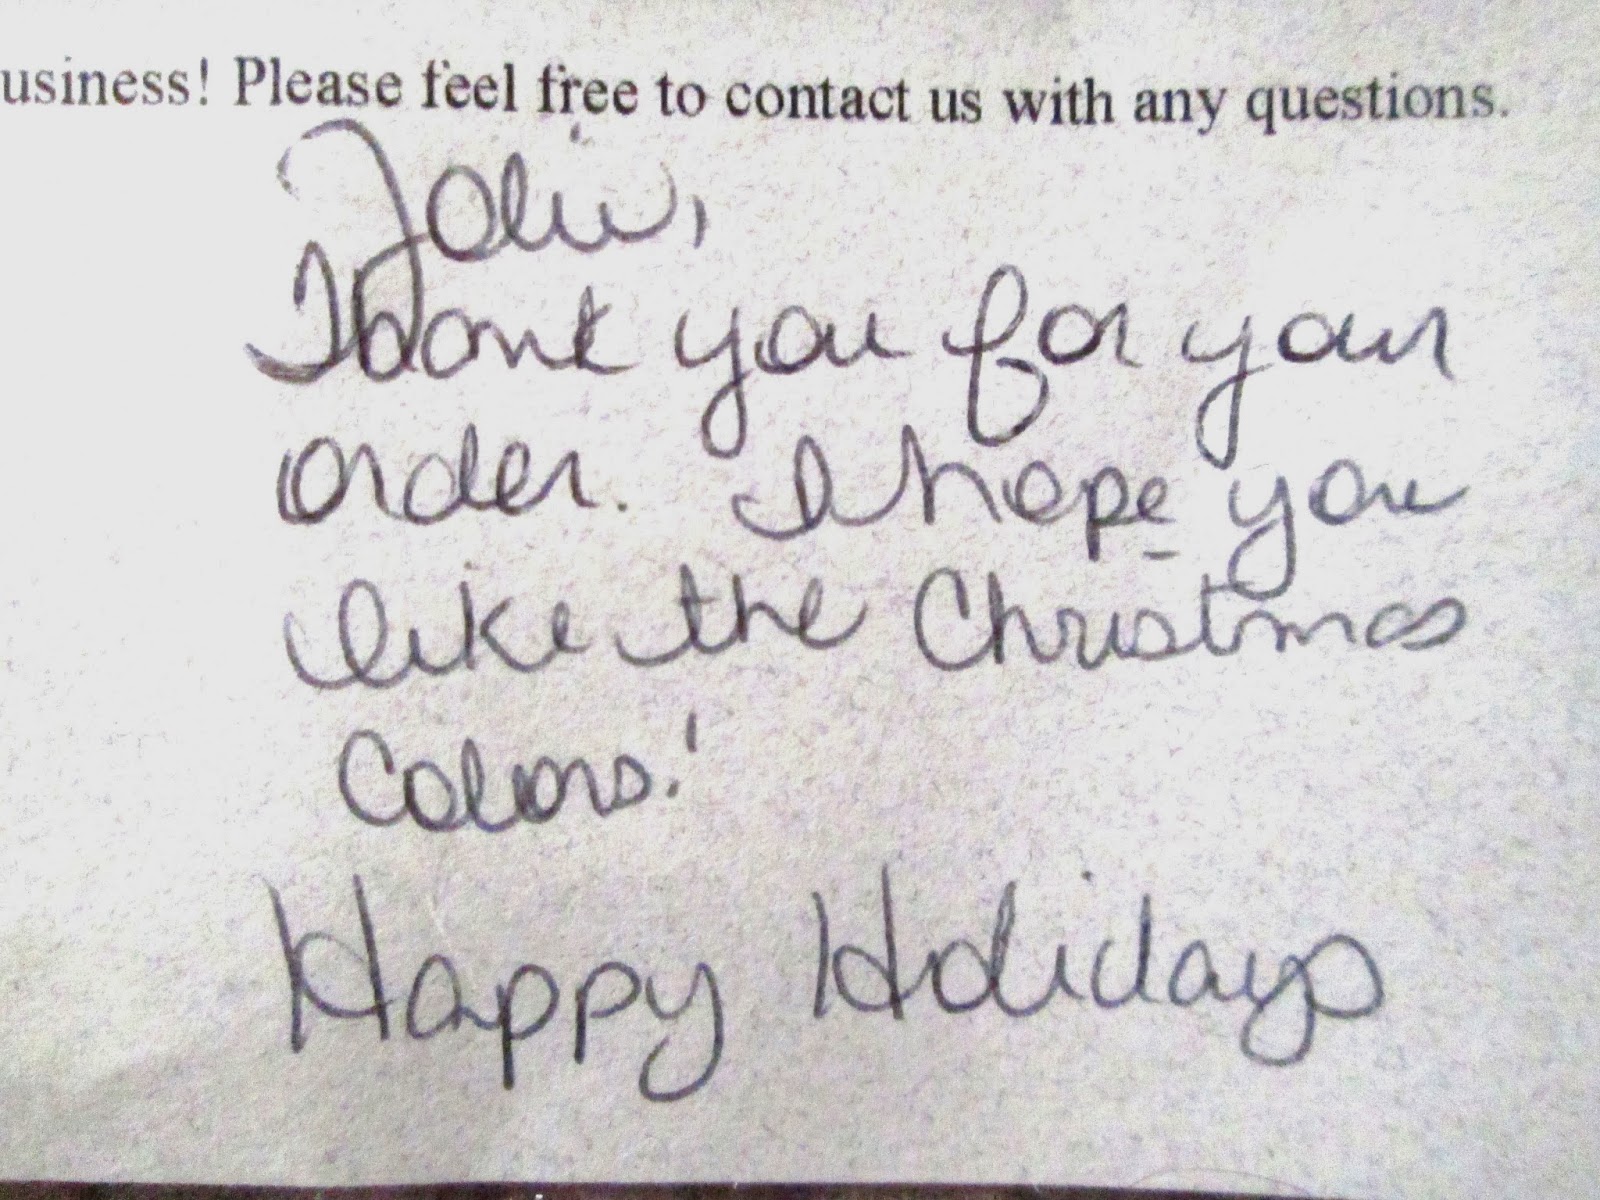 usiness! Please feel free to contact us with any questions.
Jolie,
Thank you for your
order. I hope you
like the Christmas
Colors!
Happy Holidays